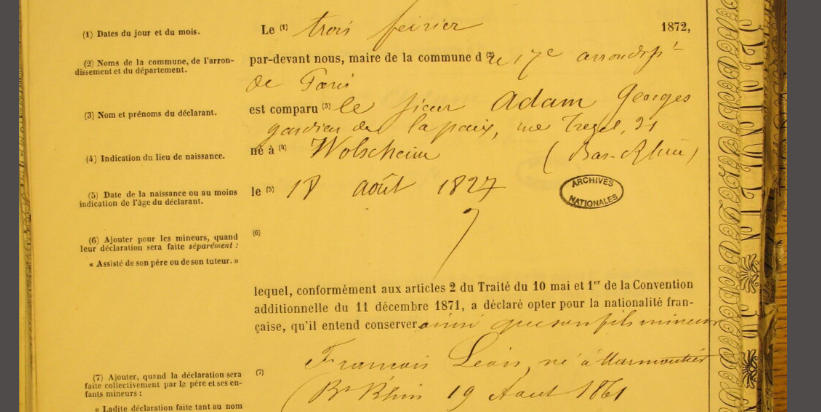 (1) Dates du jour et du mois.
Le (1) trois février 1872,
(2) Noms de la commune, de l'arron-
dissement et du département.
par-devant nous, maire de la commune d (2) le 17e arrondisst
de Paris
(3) Nom et prénoms du déclarant.
est comparu (3) le sieur Adam Georges
gardien de la paix, rue 21
(4) Indication du lieu de naissance.
né à (4) Wolscheim (Bas-Rhin)
(5) Date de la naissance ou au moins
indication de l'âge du déclarant.
le (5) 18 août 1827
ARCHIVES
NATIONALES
(6) Ajouter pour les mineurs, quand
leur déclaration sera faite séparément :
« Assisté de son père ou de son tuteur. »
(6)
lequel, conformément aux articles 2 du Traité du 10 mai et 1er de la Convention
additionnelle du 11 décembre 1871, a déclaré opter pour la nationalité fran-
çaise, qu'il entend conserver ainsi que son fils mineur
(7) Ajouter, quand la déclaration sera
faite collectivement par le père et ses en-
fants mineurs :
« Ladite déclaration faite tant au nom
(7) François Léon, né à Marmoutier
(Bs Rhin 19 Août 1861